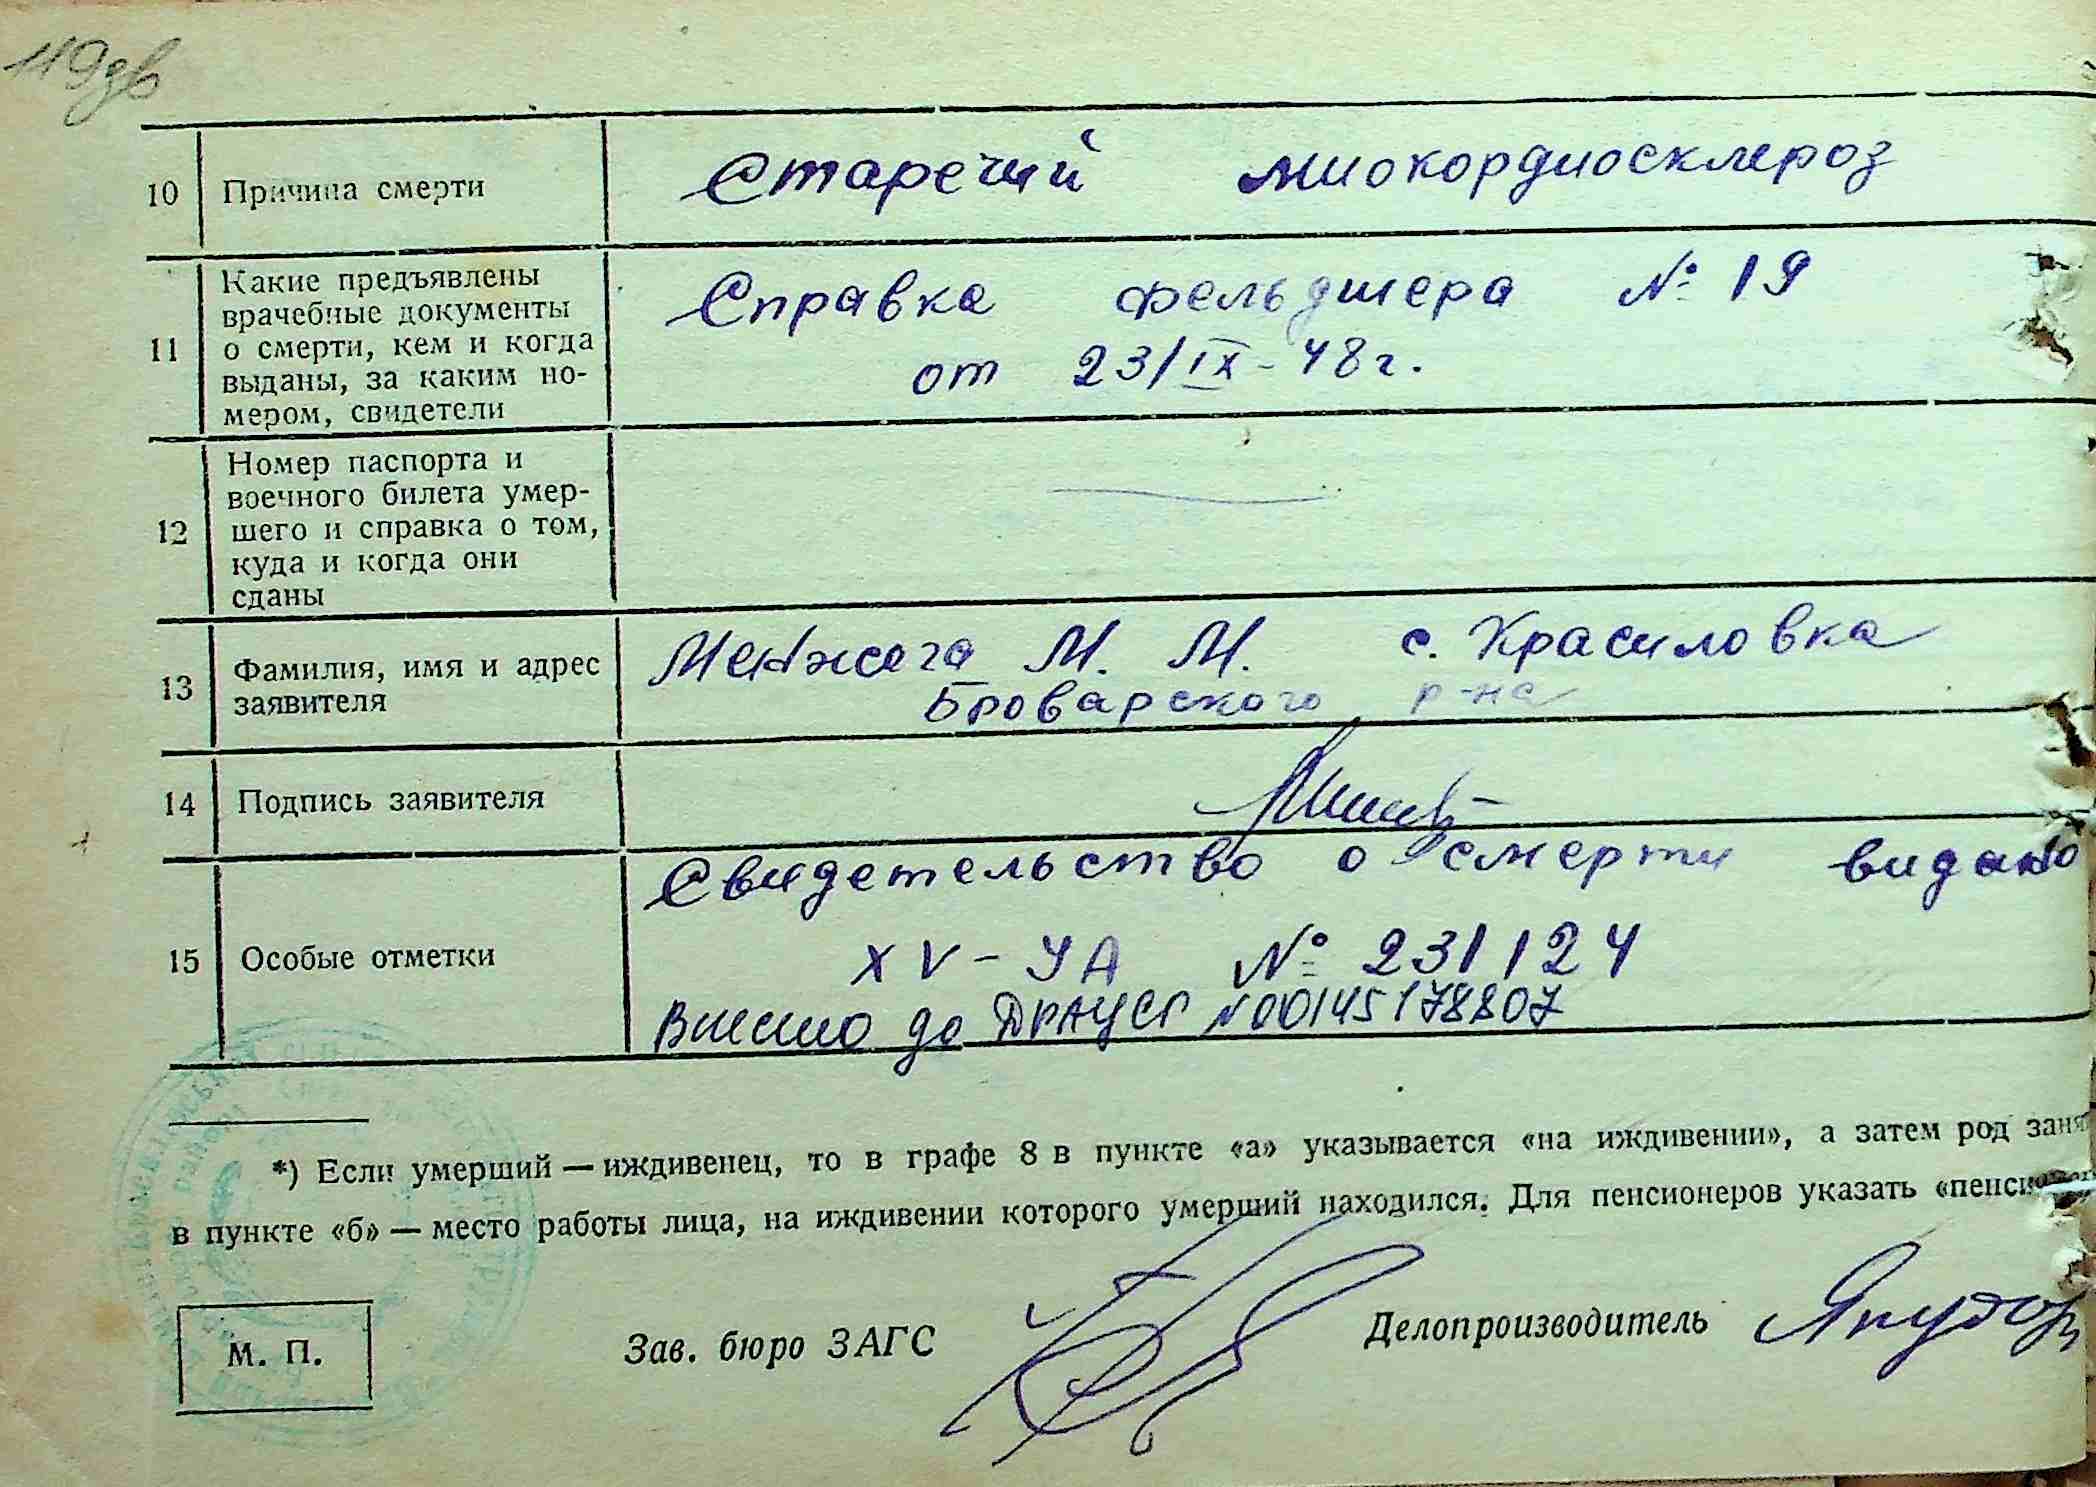 119зв
10 Причина смерти Старечий миокордиосклероз
11 Какие предъявлены врачебные документы о смерти, кем и когда выданы, за каким но-
мером, свидетели
Справка фельдшера № 19
от 23/IX-48г.
12 Номер паспорта и
военного билета умер-
шего и справка о том,
куда и когда они
сданы
13 Фамилия, имя и адрес
заявителя
М. М. с. Красиловка
Броварского р-на
14 Подпись заявителя
15 Особые отметки
Свидетельство о смерти видано
XV-УА № 231124
Внесено до ДРАЦСГ №00145178807
*) Если умерший — иждивенец, то в графе 8 в пункте «а» указывается «на иждивении», а затем род заня
в пункте «б» — место работы лица, на иждивении которого умерший находился. Для пенсионеров указать «пенсионер
М. П.
Зав. бюро ЗАГС
Делопроизводитель